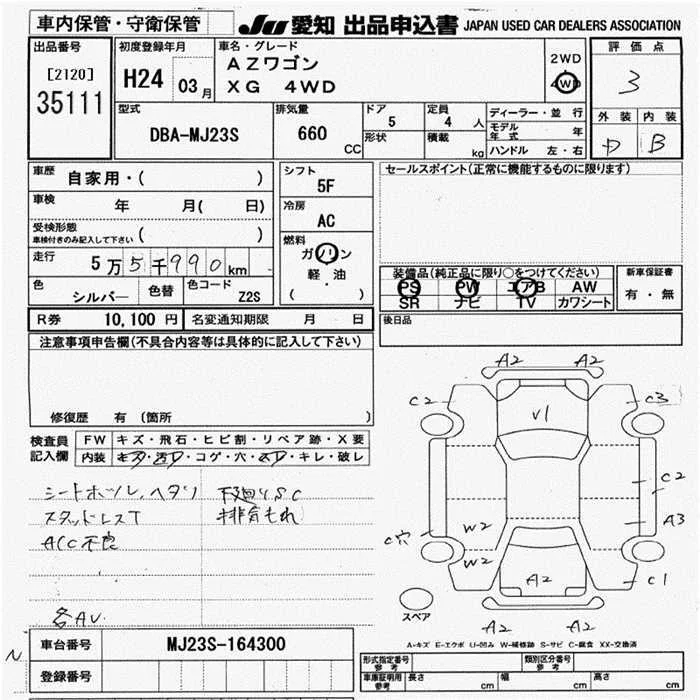 車内保管・守衛保管 JU 愛知 出品申込書 JAPAN USED CAR DEALERS ASSOCIATION
出品番号
[2120]
35111
初度登録年月
H24 03月
車名・グレード
AZワゴン
XG 4WD
2WD
4WD
評価点
3
外装 内装
B
型式
DBA-MJ23S
排気量
660 CC
ドア
5
形状
定員
4 人
積載
kg
ディーラー・並行
モデル年式 年
ハンドル 左・右
車歴 自家用・( )
車検 年 月( 日)
受検形態
車検付きのみ記入して下さい ( )
走行 5万5千990km
色 シルバー 色替 色コード Z2S
シフト
5F
冷房
AC
燃料
ガソリン
軽・油
( ・ )
セールスポイント(正常に機能するものに限ります)
装備品(純正品に限り○をつけてください)
PS PW エアB AW
SR ナビ TV カワシート
新車保証書
有・無
R券 10,100円 名変通知期限 月 日
後日品
注意事項申告欄(不具合内容等は具体的に記入して下さい)
修復歴 有 (箇所 )
検査員記入欄
FW キズ・飛石・ヒビ割・リペア跡・X要
内装 キズ・汚レ・コゲ・穴・スレ・キレ・破レ
シートホツレ、ヘタリ 下廻りSC
スタッドレスT 排気もれ
A/C不良
各AU
A2 A2
C2 C3
V1
C2
W2 A3
C穴
W2
A2 C1
スペア
A2 A2
A-キズ E-エクボ U-凹み W-補修跡 S-サビ C-腐食 XX-交換済
N
車台番号 MJ23S-164300
登録番号
形式指定番号 参考 類別区分番号 参考
車庫証明用 参考 長さ cm 幅 cm 高さ cm